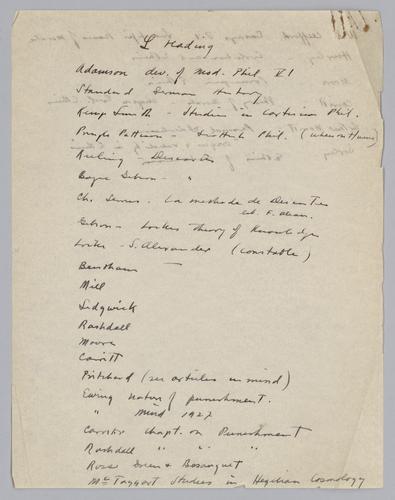 L Reading
Adamson dev. of mod. Phil V1
Standard German History
Kemp Smith - Studies in Cartesian Phil.
Pringle Pattison - Scottish Phil. (when on Hume)
Keeling - Descartes
Boyce Gibson - "
Ch. Serrus - La methode de Descartes
ed. F. Alcan.
Gibson - Lockes Theory of Knowledge
Locke - S. Alexander (Constable)
Bentham
Mill
Sidgwick
Rashdall
Moore
Carritt
Pritchard (see articles in mind)
Ewing nature of punishment.
" mind 1927
Carritt Chapt. on Punishment
Rashdall " " "
Ross Green & Bosanquet
Mc Taggart Studies in Hegelian Cosmology